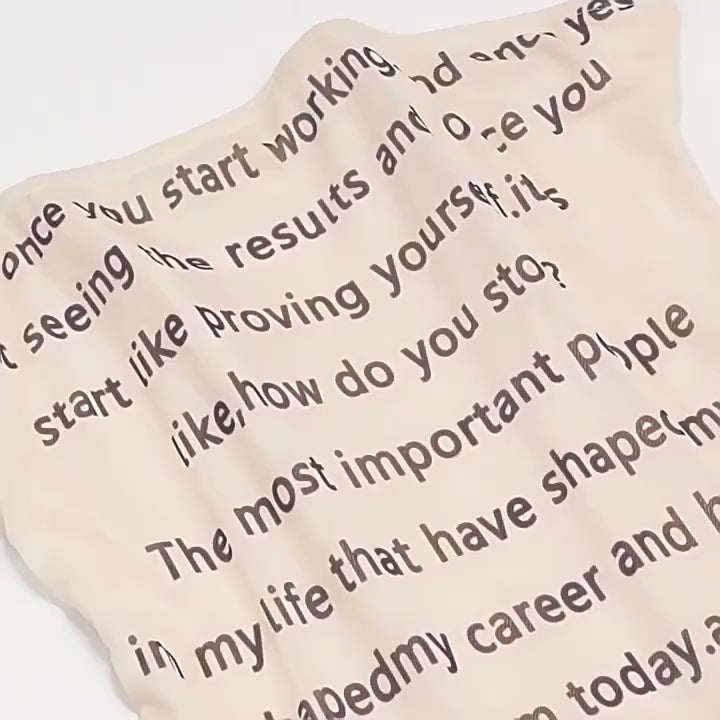 once you start working, and once yes
start seeing the results and once you
start like proving yourself. its
like, how do you stop?
The most important people
in my life that have shaped my
shapedmy career and
today.